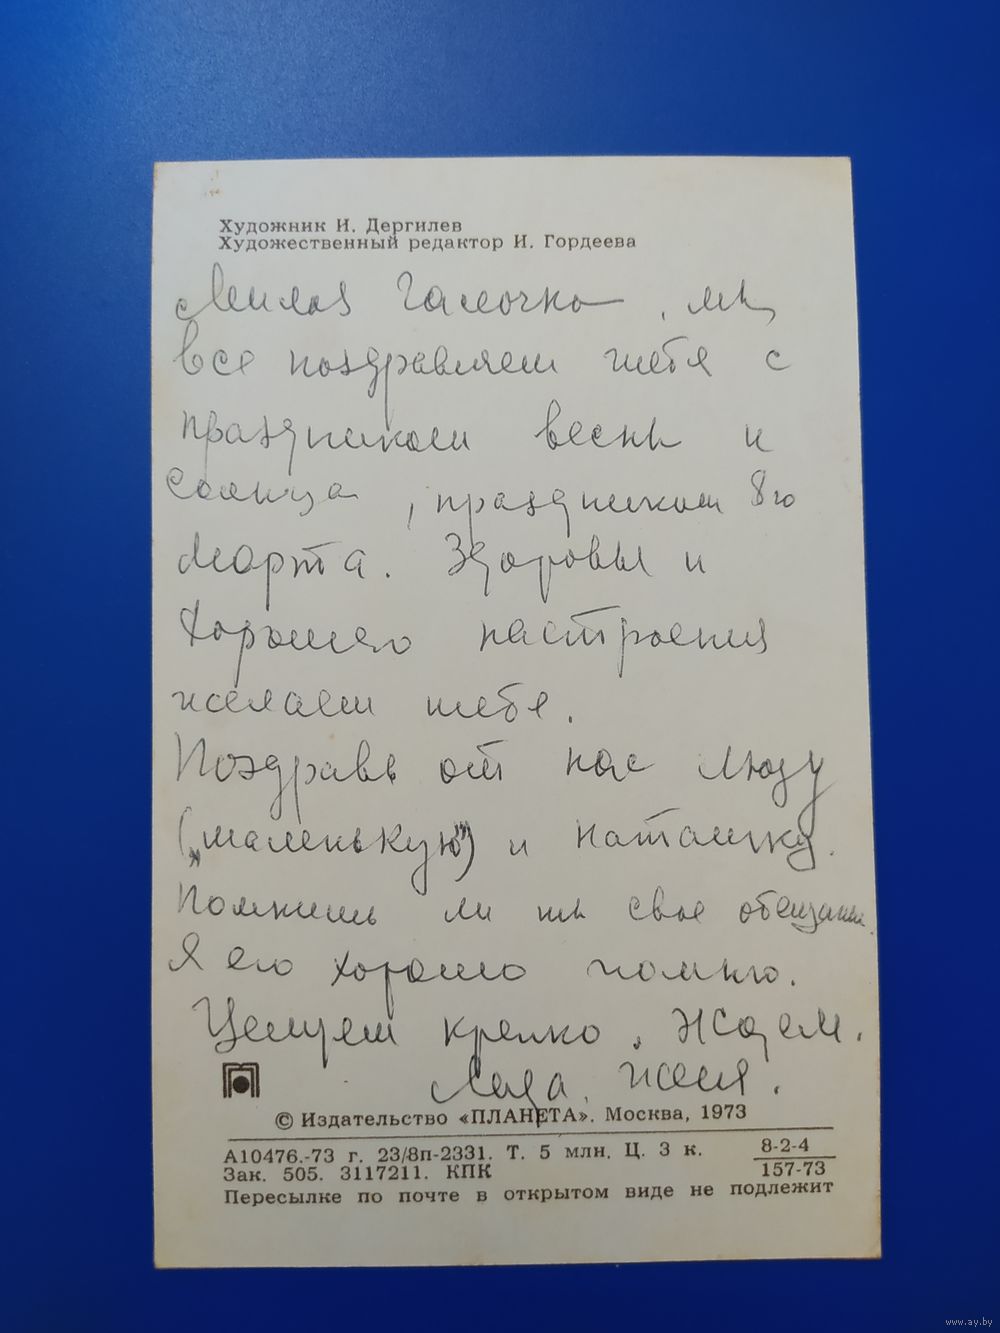 Художник И. Дергилев
Художественный редактор И. Гордеева
Милая Галочка, мы
все поздравляем тебя с
праздником весны и
солнца, праздником 8го
Марта. Здоровья и
хорошего настроения
желаем тебе.
Поздравь от нас Люду
(„маленькую") и Наташку.
Помнишь ли ты свое обещание.
Я его хорошо помню.
Целуем крепко. Ждем.
Женя.
© Издательство «ПЛАНЕТА». Москва, 1973
А10476.-73 г. 23/8п-2331. Т. 5 млн. Ц. 3 к. 8-2-4
Зак. 505. 3117211. КПК 157-73
Пересылке по почте в открытом виде не подлежит
www.ay.by